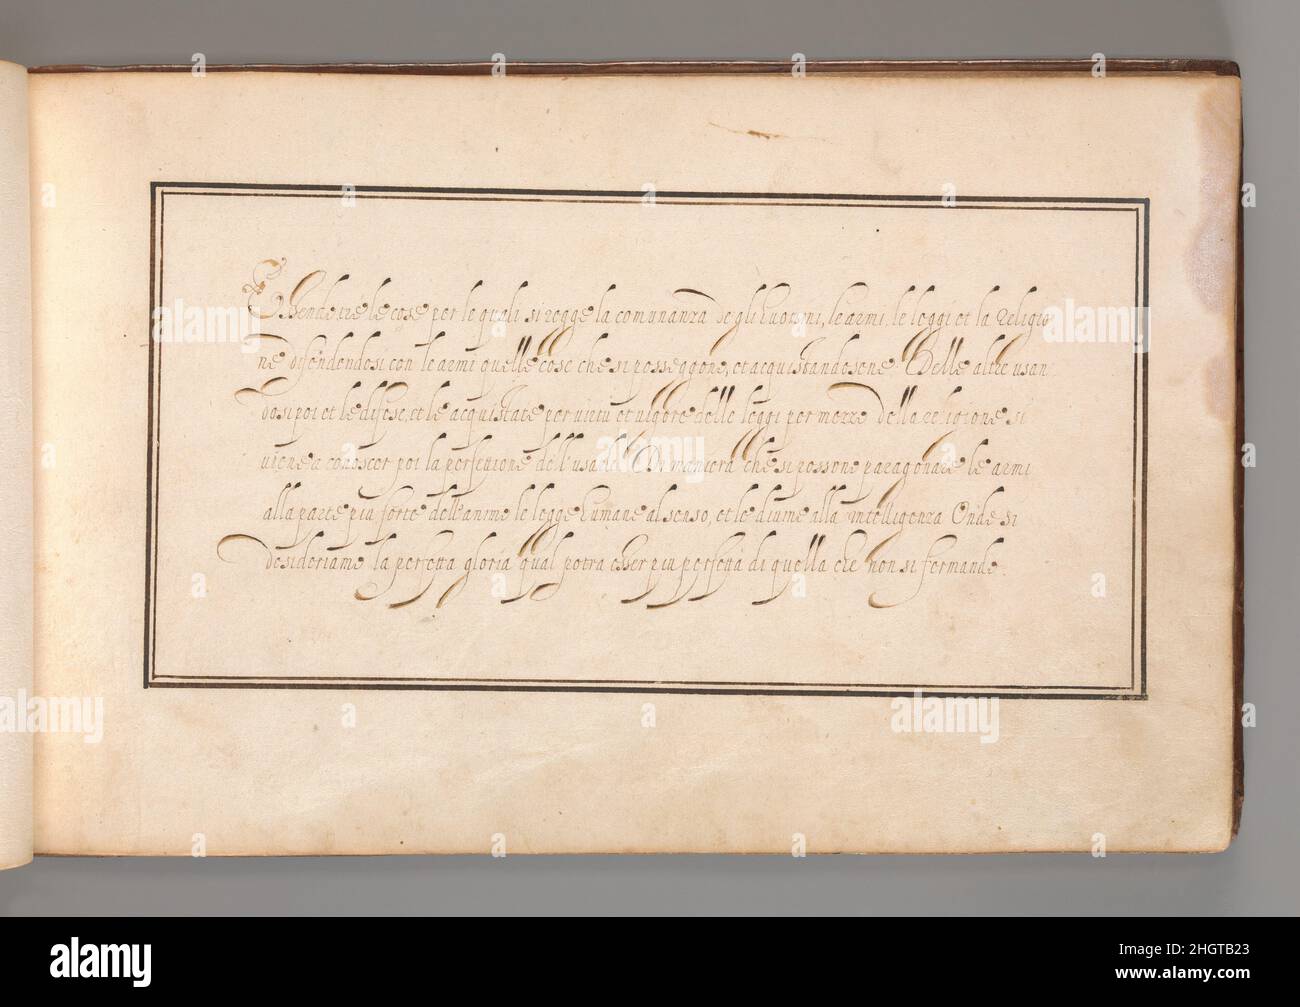 Essende tre le cose per le quali si regge la comunanza de gli huomini, le armi, le leggi et la religio
ne difendendosi con le armi quelle cose che si posseggono, et acquistandosene Delle altre usan
dosi poi et le difese, et le acquistate per virtù et vigore delle leggi per mezzo della religione si
viene a conoscer poi la perfettione dell'usarle Di maniera che si possono paragonare le armi
alla parte piu forte dell'animo le legge humane al senso, et le divine alla intelligenza Onde si
desideriamo la perfetta gloria qual potra esser piu perfetta di quella che non si fermando.
alamy
Image ID: 2HGTB23
www.alamy.com